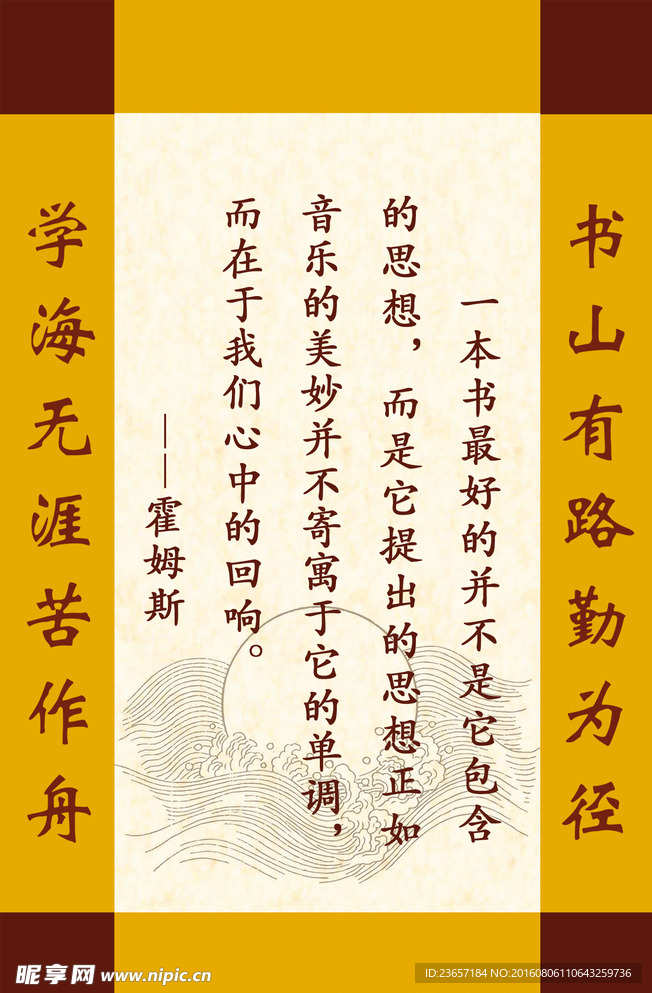 书山有路勤为径
一本书最好的并不是它包含
的思想，而是它提出的思想正如
音乐的美妙并不寄寓于它的单调，
而在于我们心中的回响。
——霍姆斯
学海无涯苦作舟
昵享网 www.nipic.cn
ID:23657184 NO:20160806110643259736